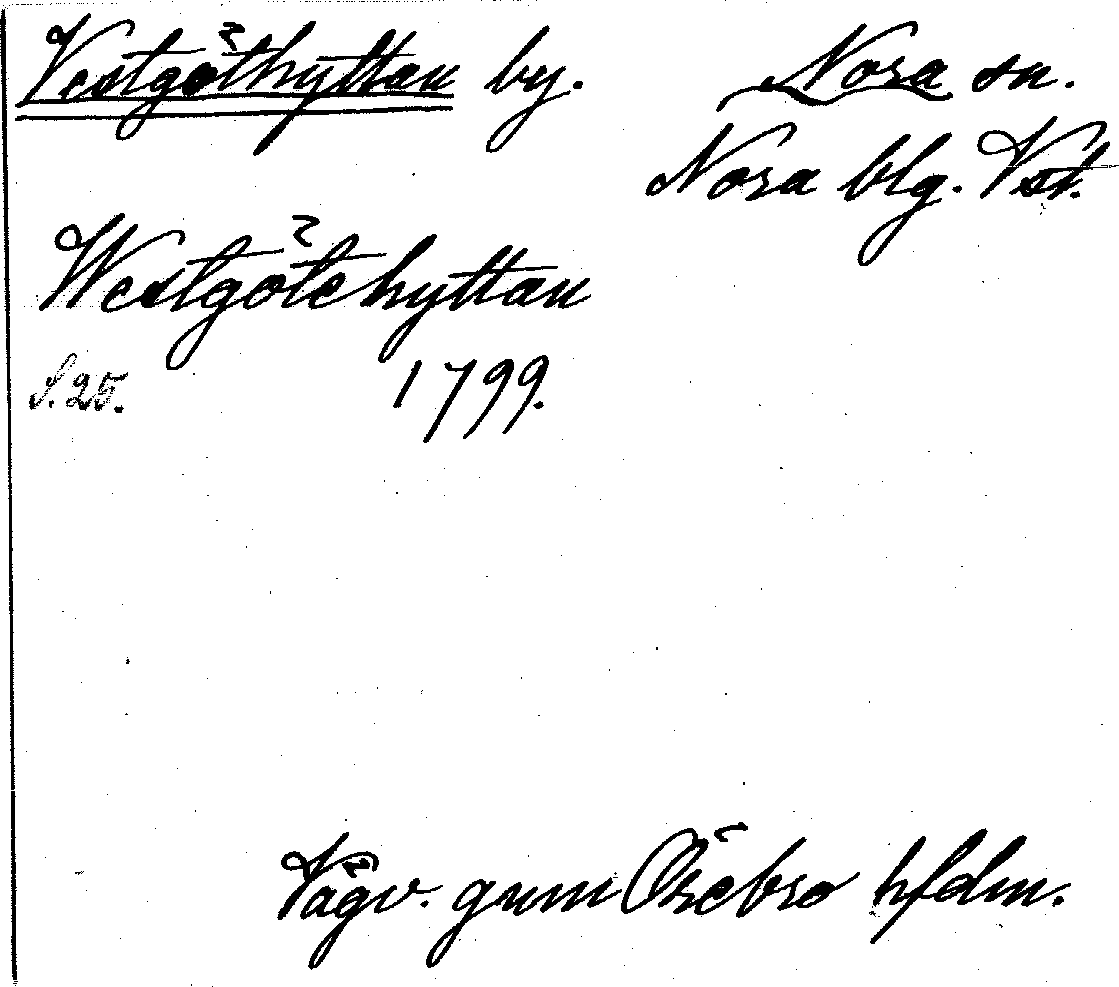 Vestgöthyttan by. Nora sn.
Nora blg. Vst.
Westgötehyttan
S. 25. 1799.
Vägv. gnm Örebro hfdm.